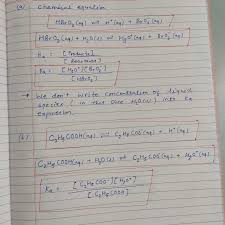 (a) Chemical equation
HBrO₃(aq) ⇌ H⁺(aq) + BrO₃⁻(aq)
HBrO₃(aq) + H₂O(l) ⇌ H₃O⁺(aq) + BrO₃⁻(aq)
Ka = [Products] / [Reactants]
Ka = [H₃O⁺][BrO₃⁻] / [HBrO₃]
→ We don't write concentration of liquid
species (in this case H₂O(l)) into Ka
expression.
(b) C₂H₅COOH(aq) ⇌ C₂H₅COO⁻(aq) + H⁺(aq)
C₂H₅COOH(aq) + H₂O(l) ⇌ C₂H₅COO⁻(aq) + H₃O⁺(aq)
Ka = [C₂H₅COO⁻][H₃O⁺] / [C₂H₅COOH]